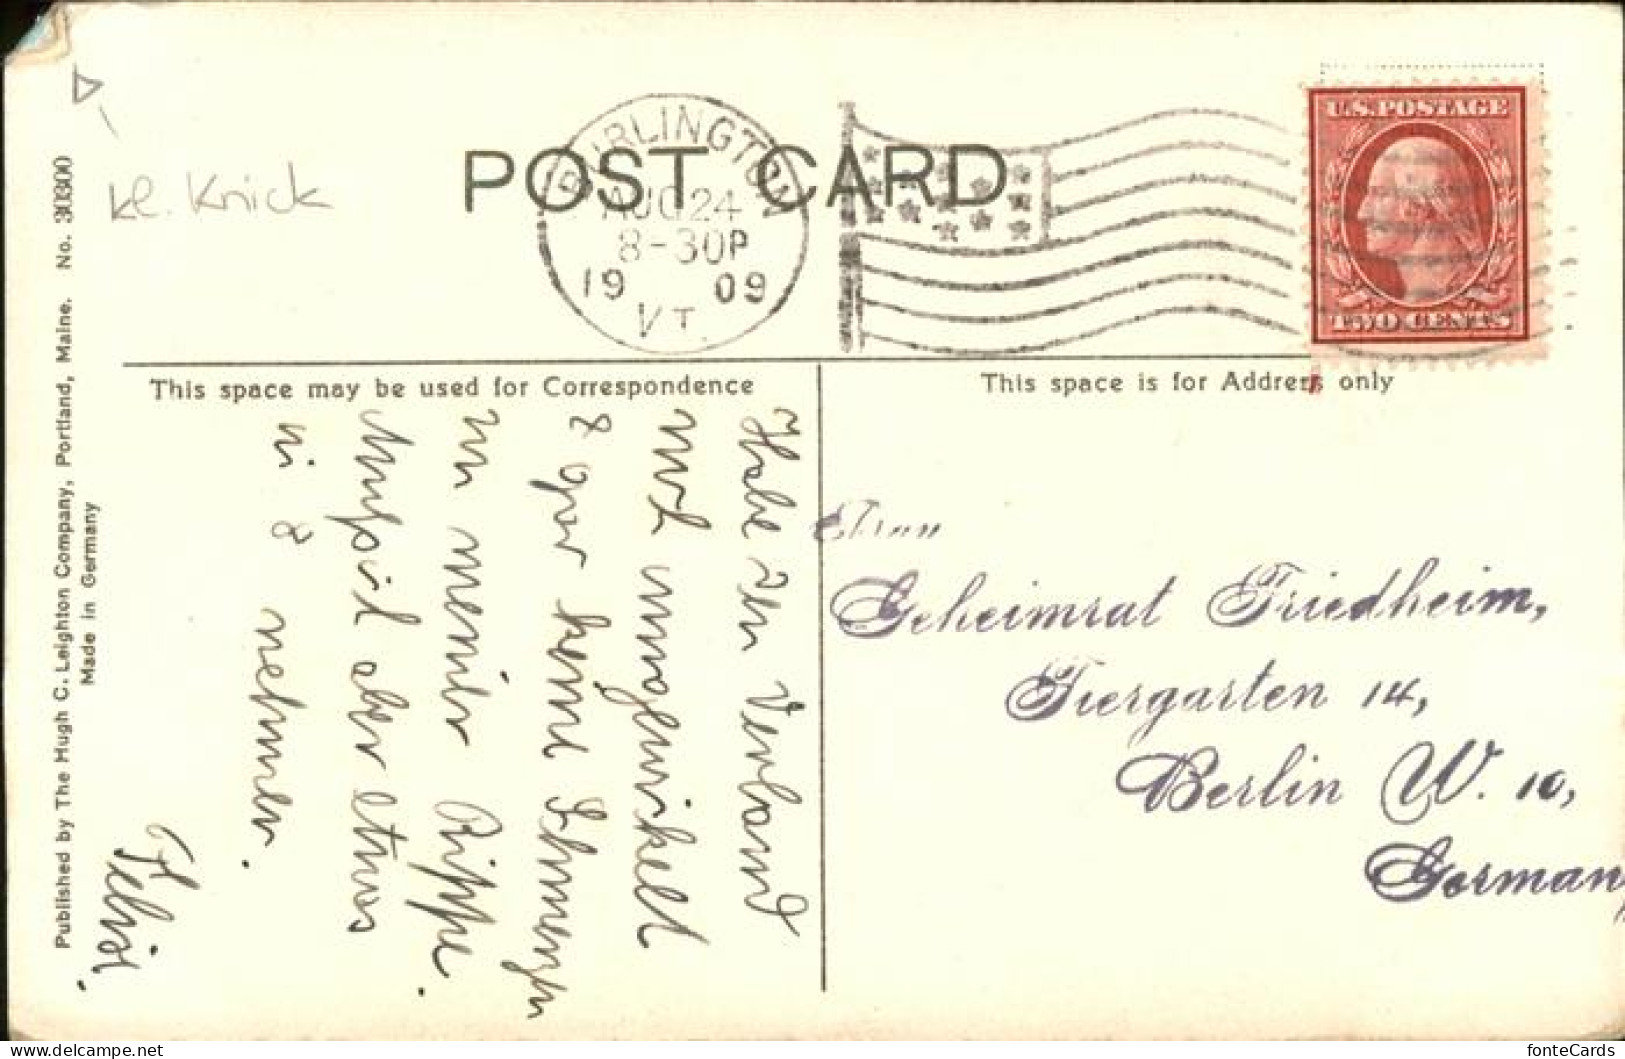 POST CARD
BURLINGTON
AUG 24
8-30P
19 09
VT.
U.S.POSTAGE
TWO CENTS
kl. Knick
This space may be used for Correspondence
This space is for Address only
Habe den Verband
nicht
& gar keine Schmerzen
in meiner Rippe.
aber etwas
& nehmen.
Frau
Geheimrat Friedheim,
Tiergarten 14,
Berlin W. 10,
Germany
Published by The Hugh C. Leighton Company, Portland, Maine. No. 30300
Made in Germany
fonteCards